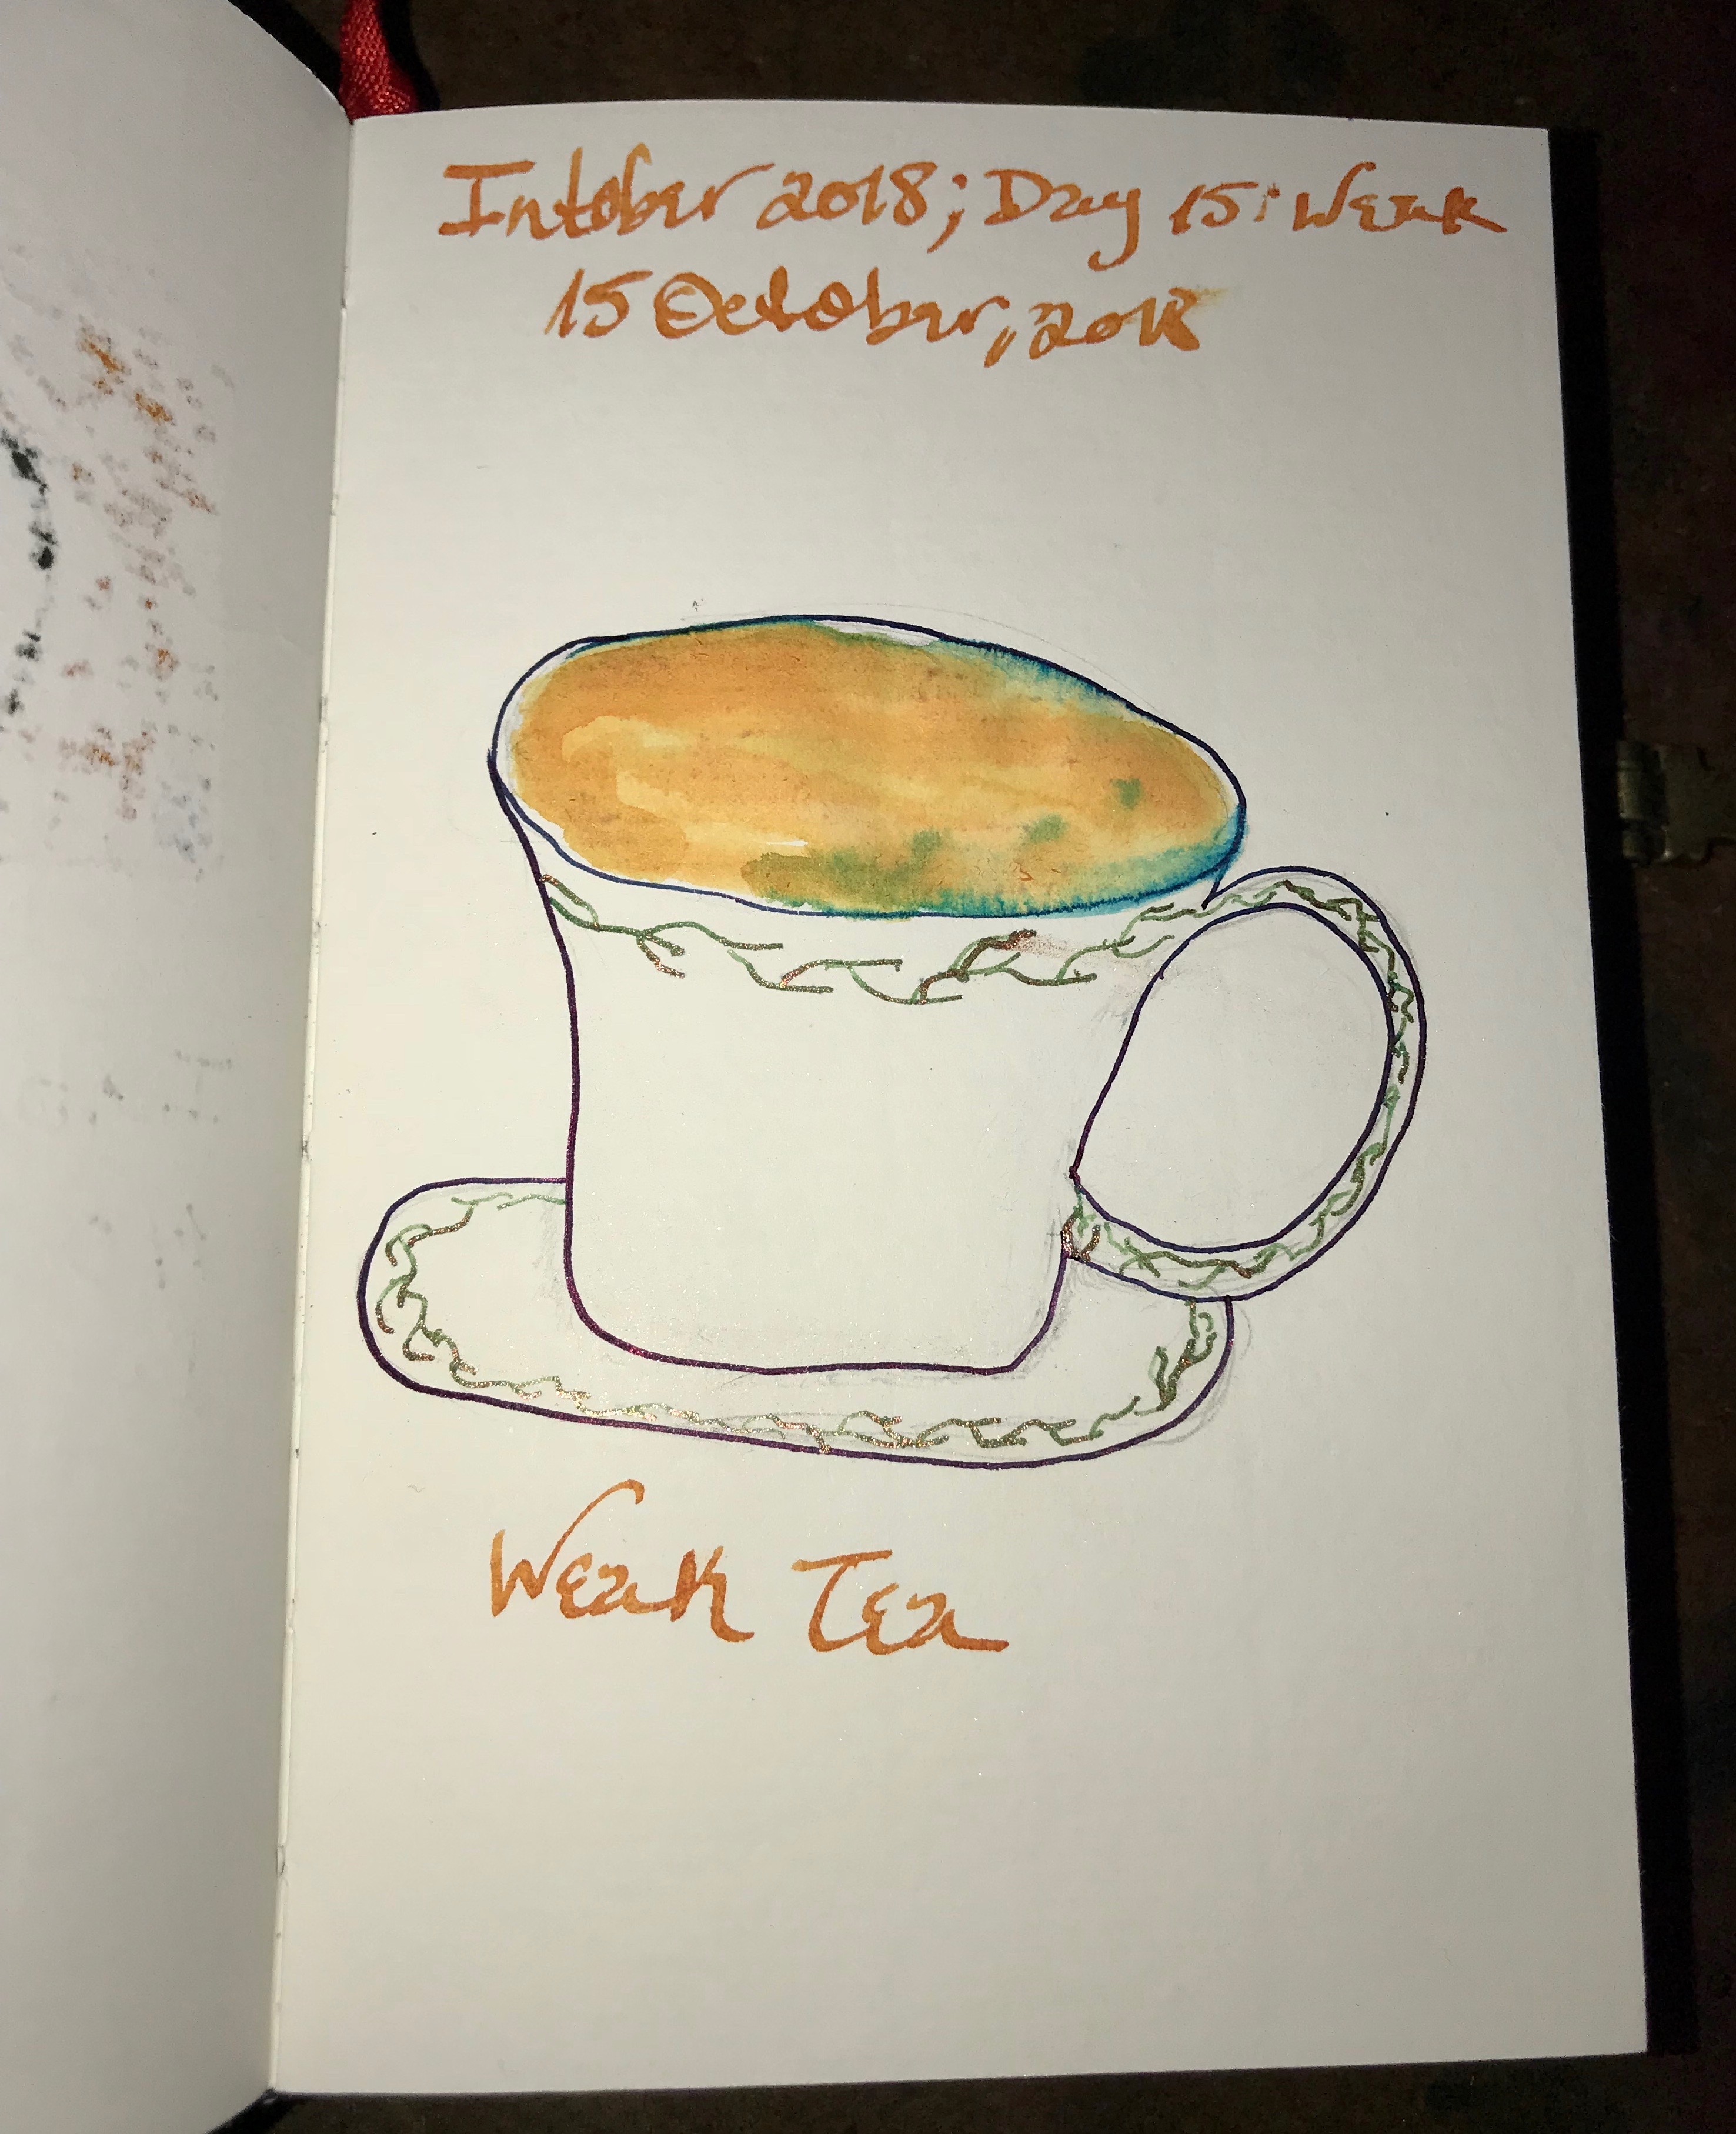 Intober 2018; Day 15: Weak
15 October, 2018
Weak Tea